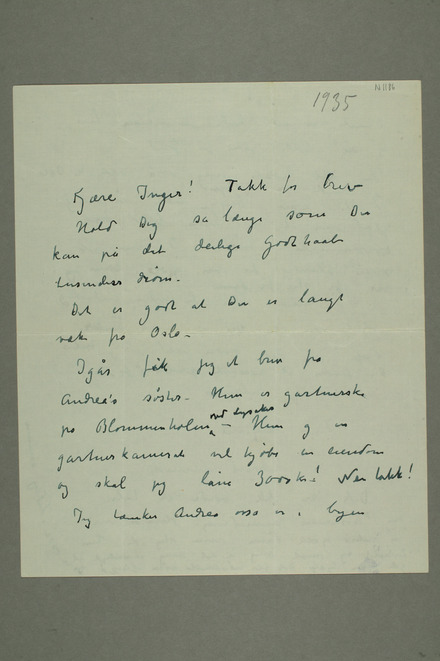 N 1186
1935
Kjære Inger! Takk for brev
Hold Dig så længe som Du
kan på det deilige Godthaab
Det er godt at Du er langt
væk fra Oslo –
Igår fik jeg et brev fra
Andrea's søster – Hun er gartnerske
på Blommenholm
– Hun og en
gartnerkamerat vil kjøbe en eiendom
og skal jeg låne 3000 kr! Nei takk!
Jeg tænker Andrea osså er i byen